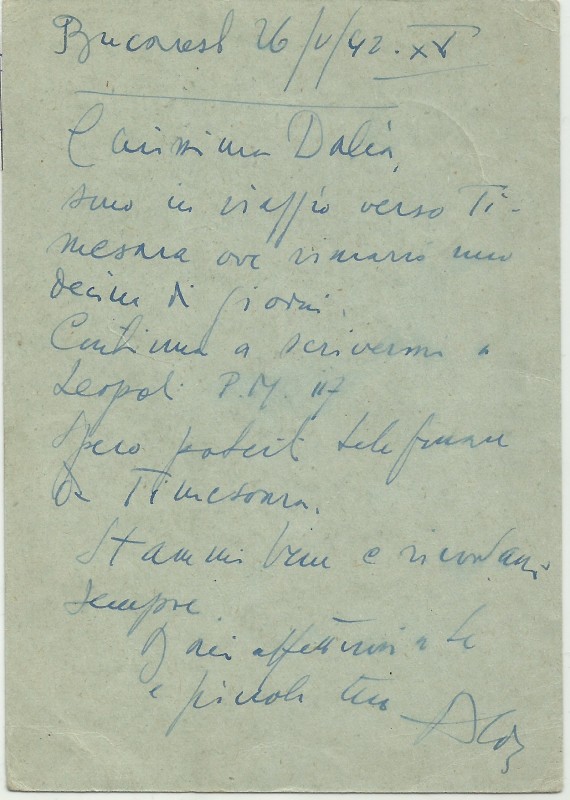 Bucarest 26/V/42. XX
Carissima Dalia,
sono in viaggio verso Ti-
mesoara ove rimarrò una
decina di giorni.
Continua a scrivermi a
Leopoli P.M. 117
Spero poterti telefonare
da Timesoara.
Stammi bene e ricordami
sempre
Baci affettuosi a te
e piccoli tuo
Aldo